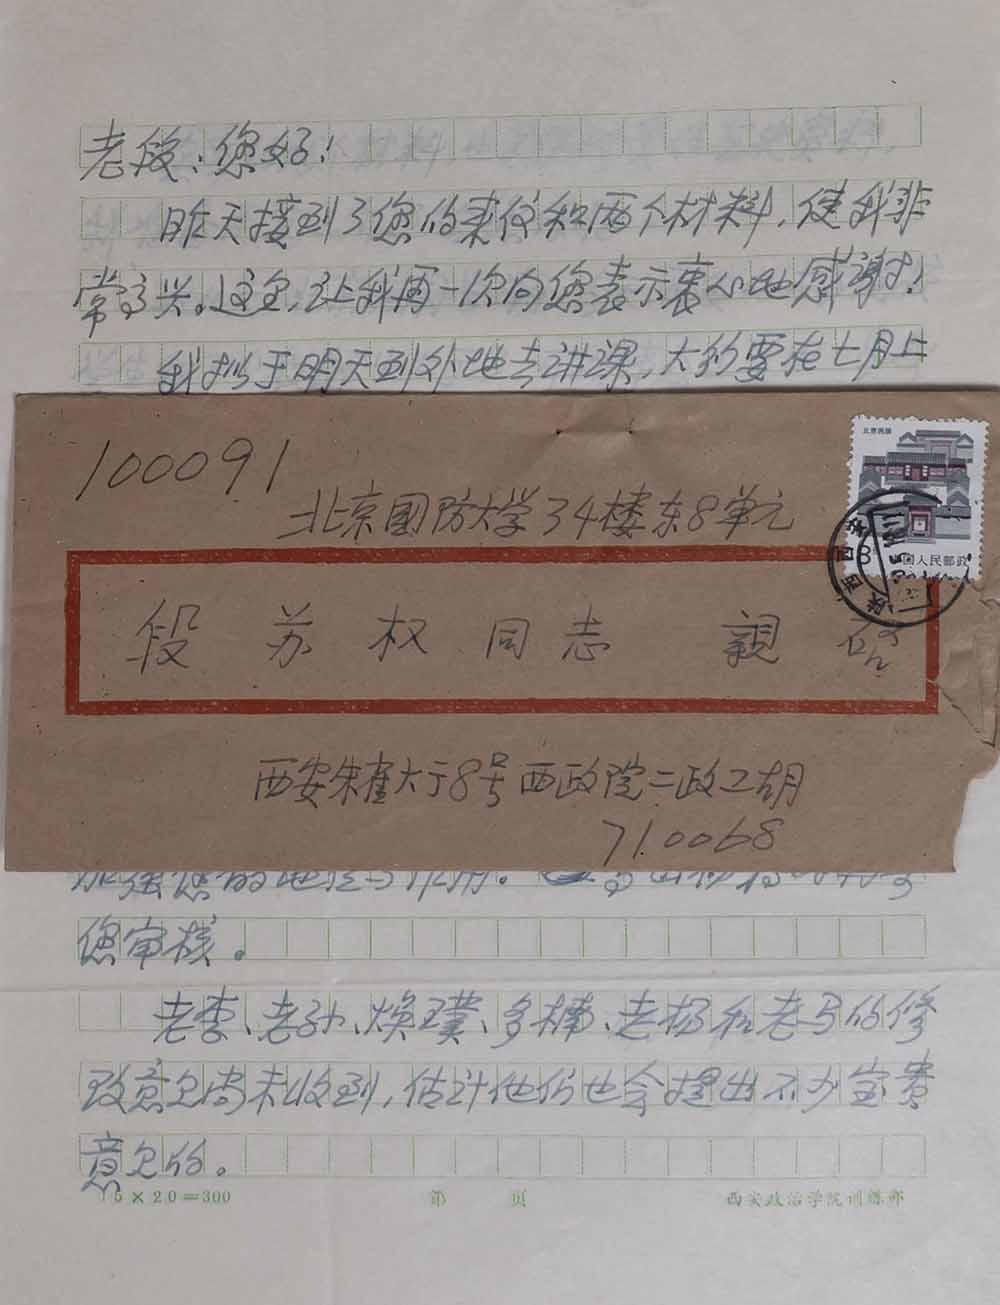 老段：您好！
昨天接到了您的来信和两个材料，使我非
常高兴。这里，让我再一次向您表示衷心地感谢！
我拟于明天到外地去讲课，大约要在七月上
100091
北京民居
北京國防大学34楼东8单元
中国人民邮政
陕西西安
段苏权同志 親启
西安朱雀大于8号西政院二政工胡
710068
您审核。
老李、老孙、焕璞、多樟、老杨和老马的修
改意见尚未收到，估计他们也会提出不少宝贵
意见的。
15×20=300 第 页 西安政治学院训练部